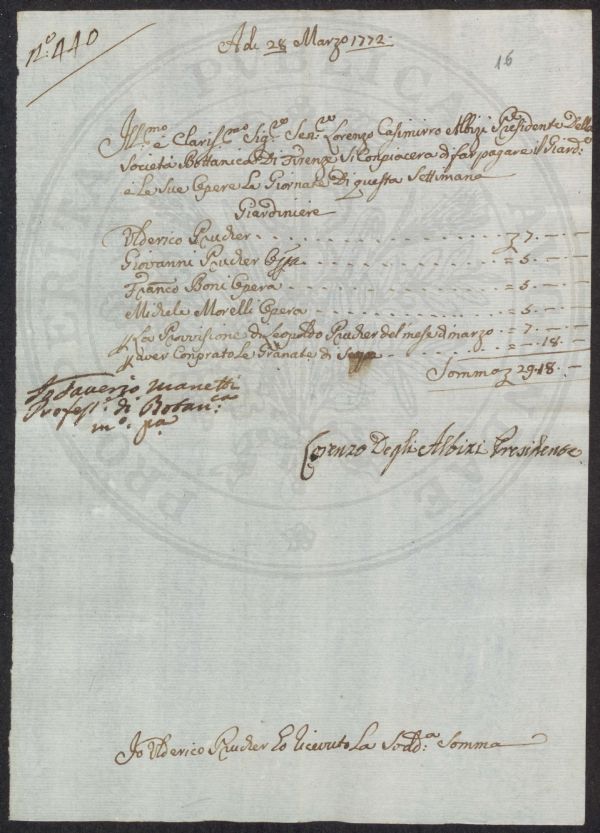 n.° 440
A di 28 Marzo 1772
16
Ill.mo e Clariss.mo Sig.re Sen.re Lorenzo Casimirro Albizi Presidente Della
Società Bottanica Di Firenze Si Conpiacera di far pagare il Giard.e
e Le Sue Opere Le Giornate Di questa Settimana
Giardiniere
Ulderico Rudier 7. — —
Giovanni Rudier = 5. — —
Franco Boni Opera = 5. — —
Michele Morelli Opera = 5. — —
La Provvisione di Leopoldo Rudier del mese di marzo = 7. — —
aver Conprato Le Granate di = — 18. —
Somma 29. 18. —
Saverio Manetti
Profess.e di Botan.ca
m.o p.a
Lorenzo Degli Albizi Presidente
Io Ulderico Rudier Ho ricevuto La Sodd.a Somma
PUBLICA